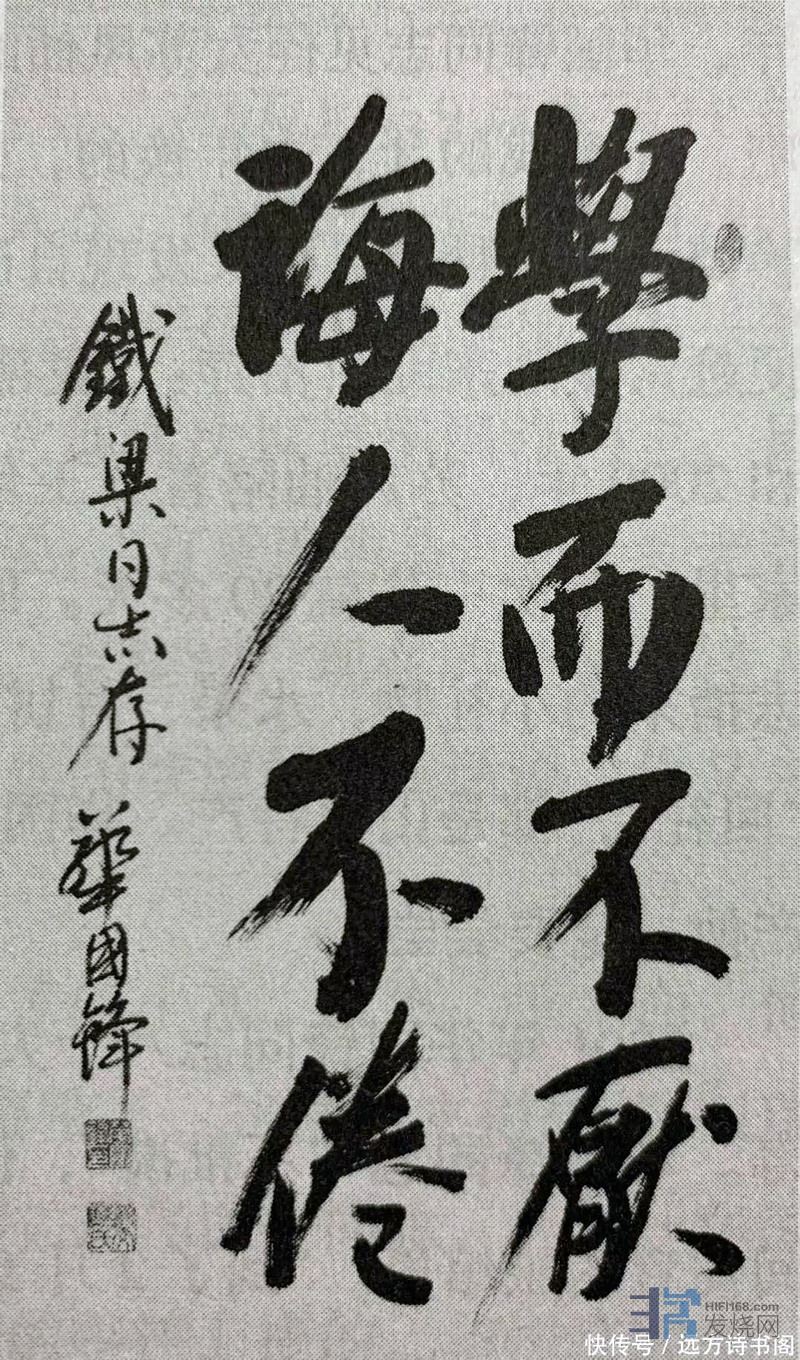 學而不厭
誨人不倦
鐵梁同志存 華國鋒
HIFI168.com
发烧网
快传号 / 远方诗书阁